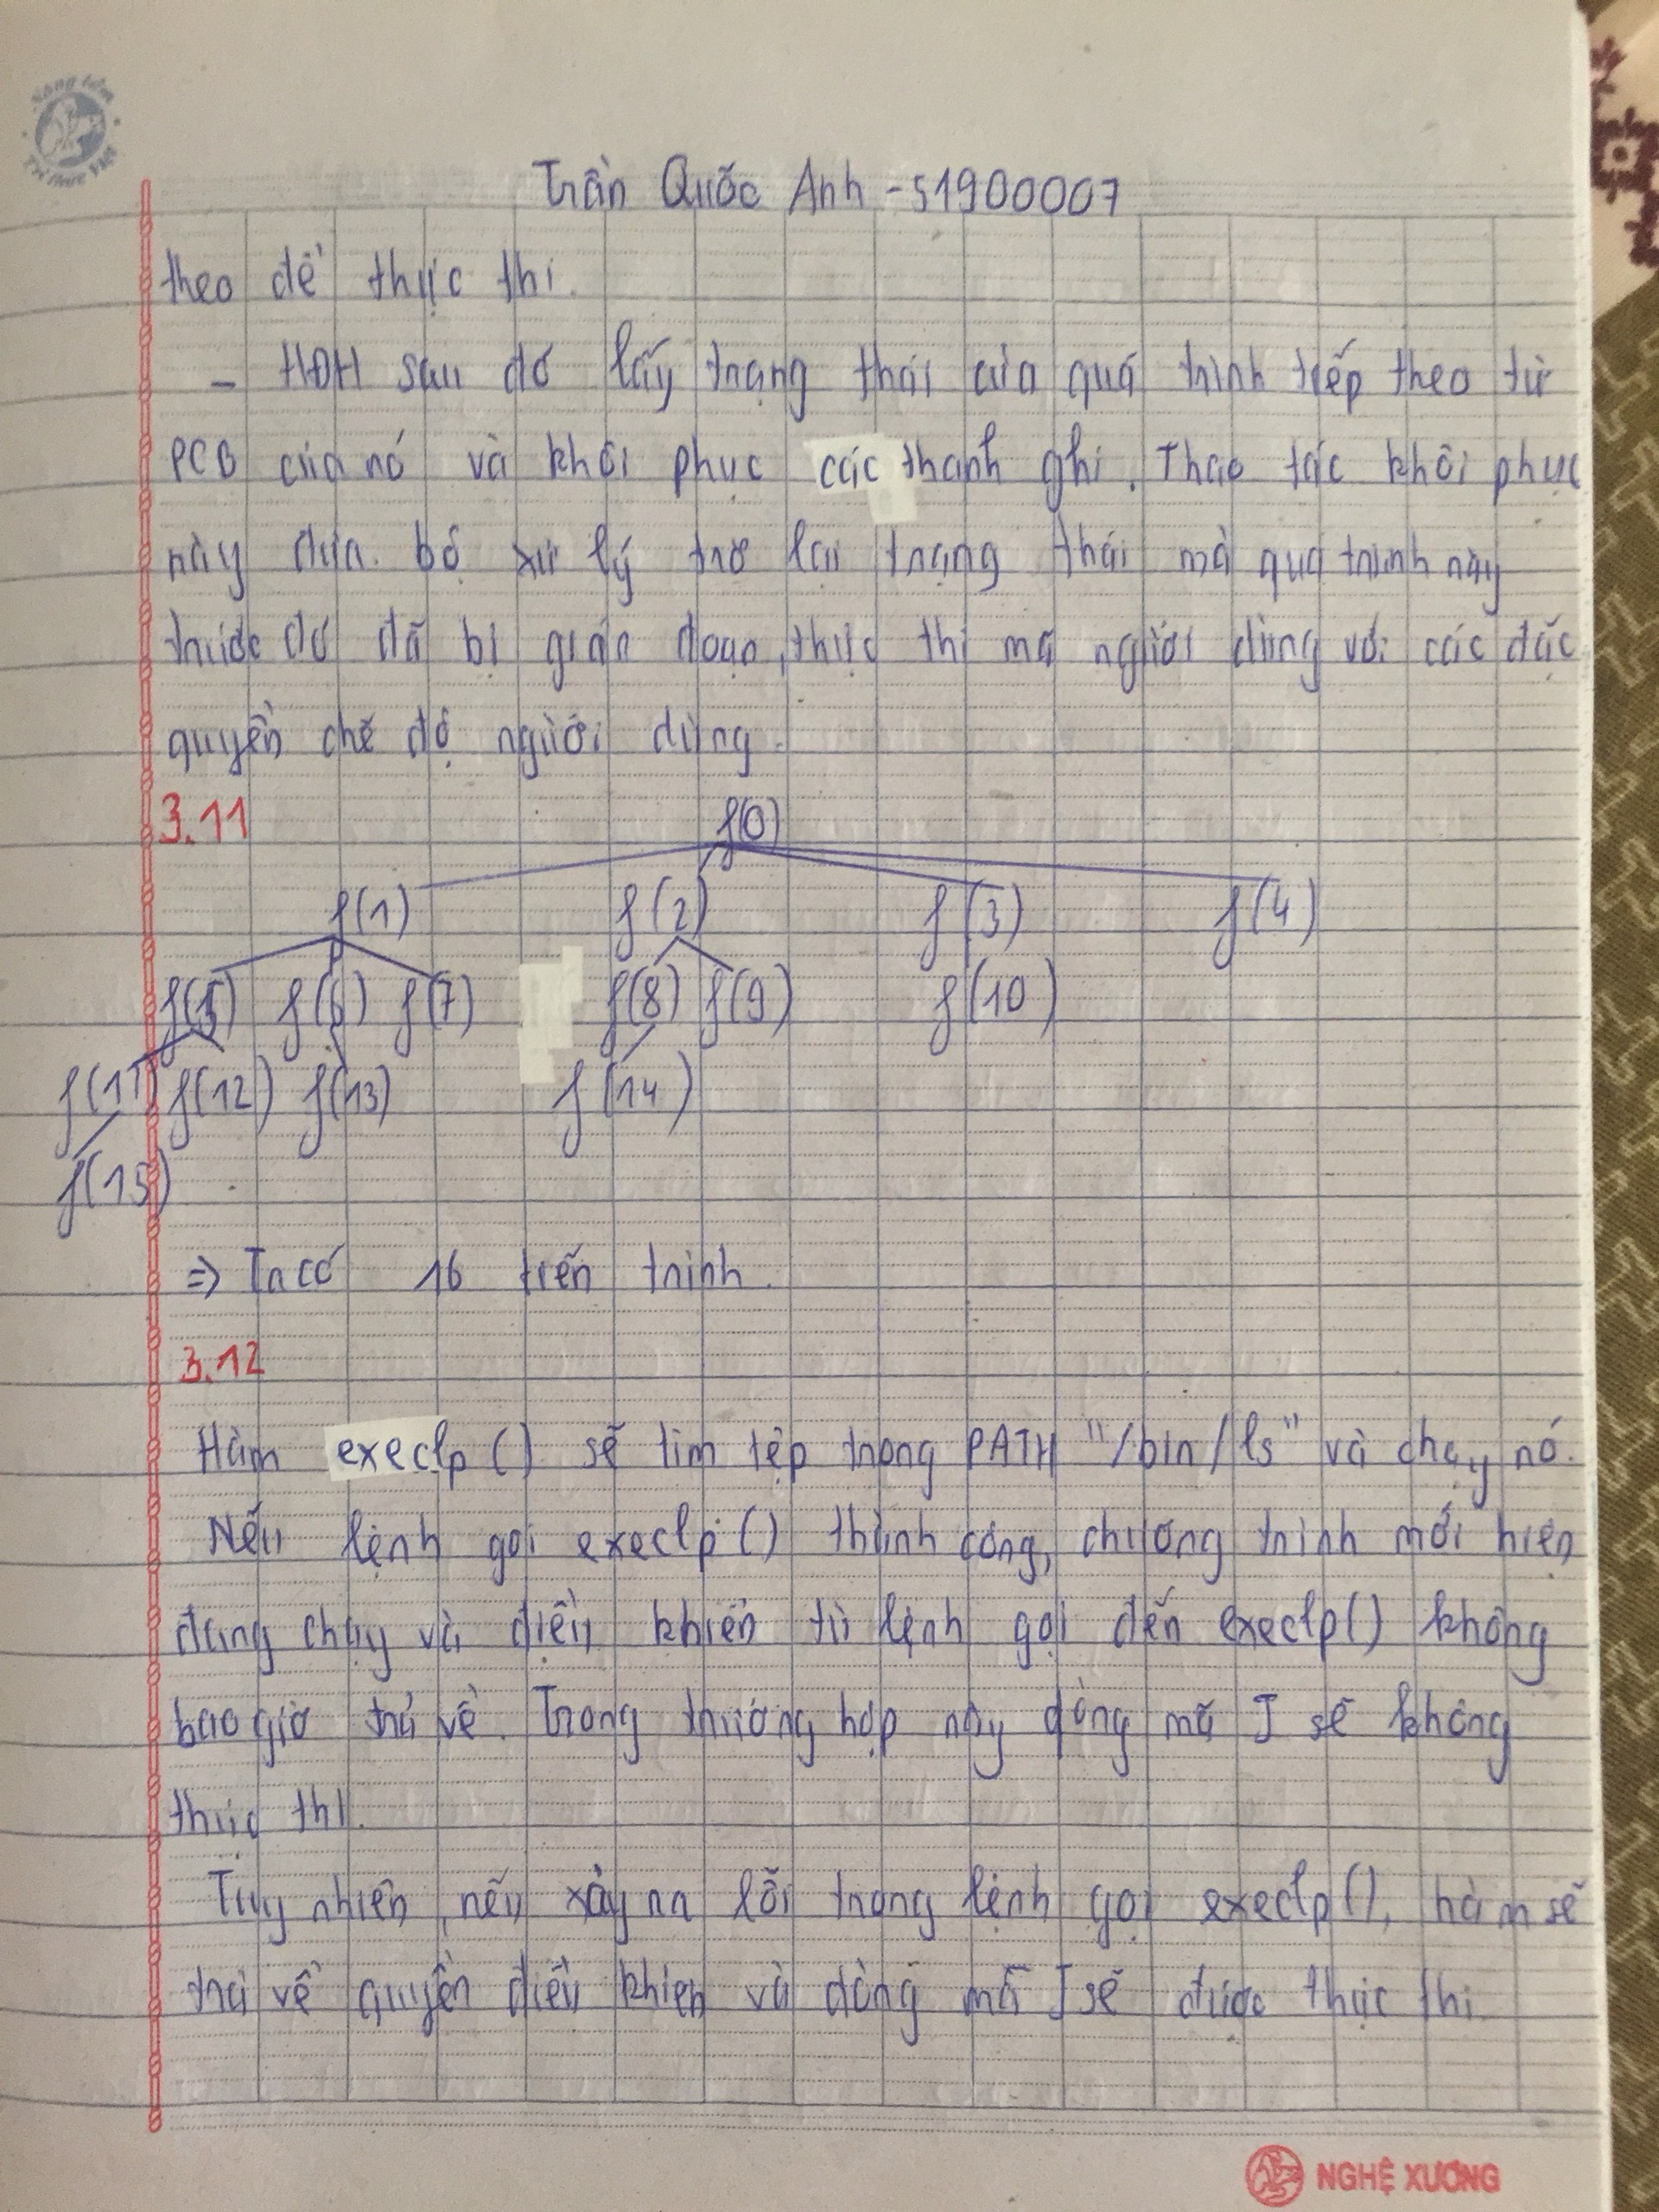 Sáng tâm
Trí thức Việt
Trần Quốc Anh - 51900007
theo để thực thi.
- HĐH sau đó lấy trạng thái của quá trình tiếp theo từ
PCB của nó và khôi phục các thanh ghi. Thao tác khôi phục
này đưa bộ xử lý trở lại trạng thái mà quá trình này
trước đó đã bị gián đoạn, thực thi mã người dùng với các đặc
quyền chế độ người dùng.
3.11
f(0)
f(1) f(2) f(3) f(4)
f(5) f(6) f(7) f(8) f(9) f(10)
f(11) f(12) f(13) f(14)
f(15)
=> Ta có 16 tiến trình.
3.12
Hàm execlp() sẽ tìm tệp trong PATH "/bin/ls" và chạy nó.
Nếu lệnh gọi execlp() thành công, chương trình mới hiện
đang chạy và điều khiển từ lệnh gọi đến execlp() không
bao giờ trả về. Trong trường hợp này dòng mã J sẽ không
thực thi.
Tuy nhiên, nếu xảy ra lỗi trong lệnh gọi execlp(), hàm sẽ
trả về quyền điều khiển và dòng mã J sẽ được thực thi
NGHỆ XƯƠNG